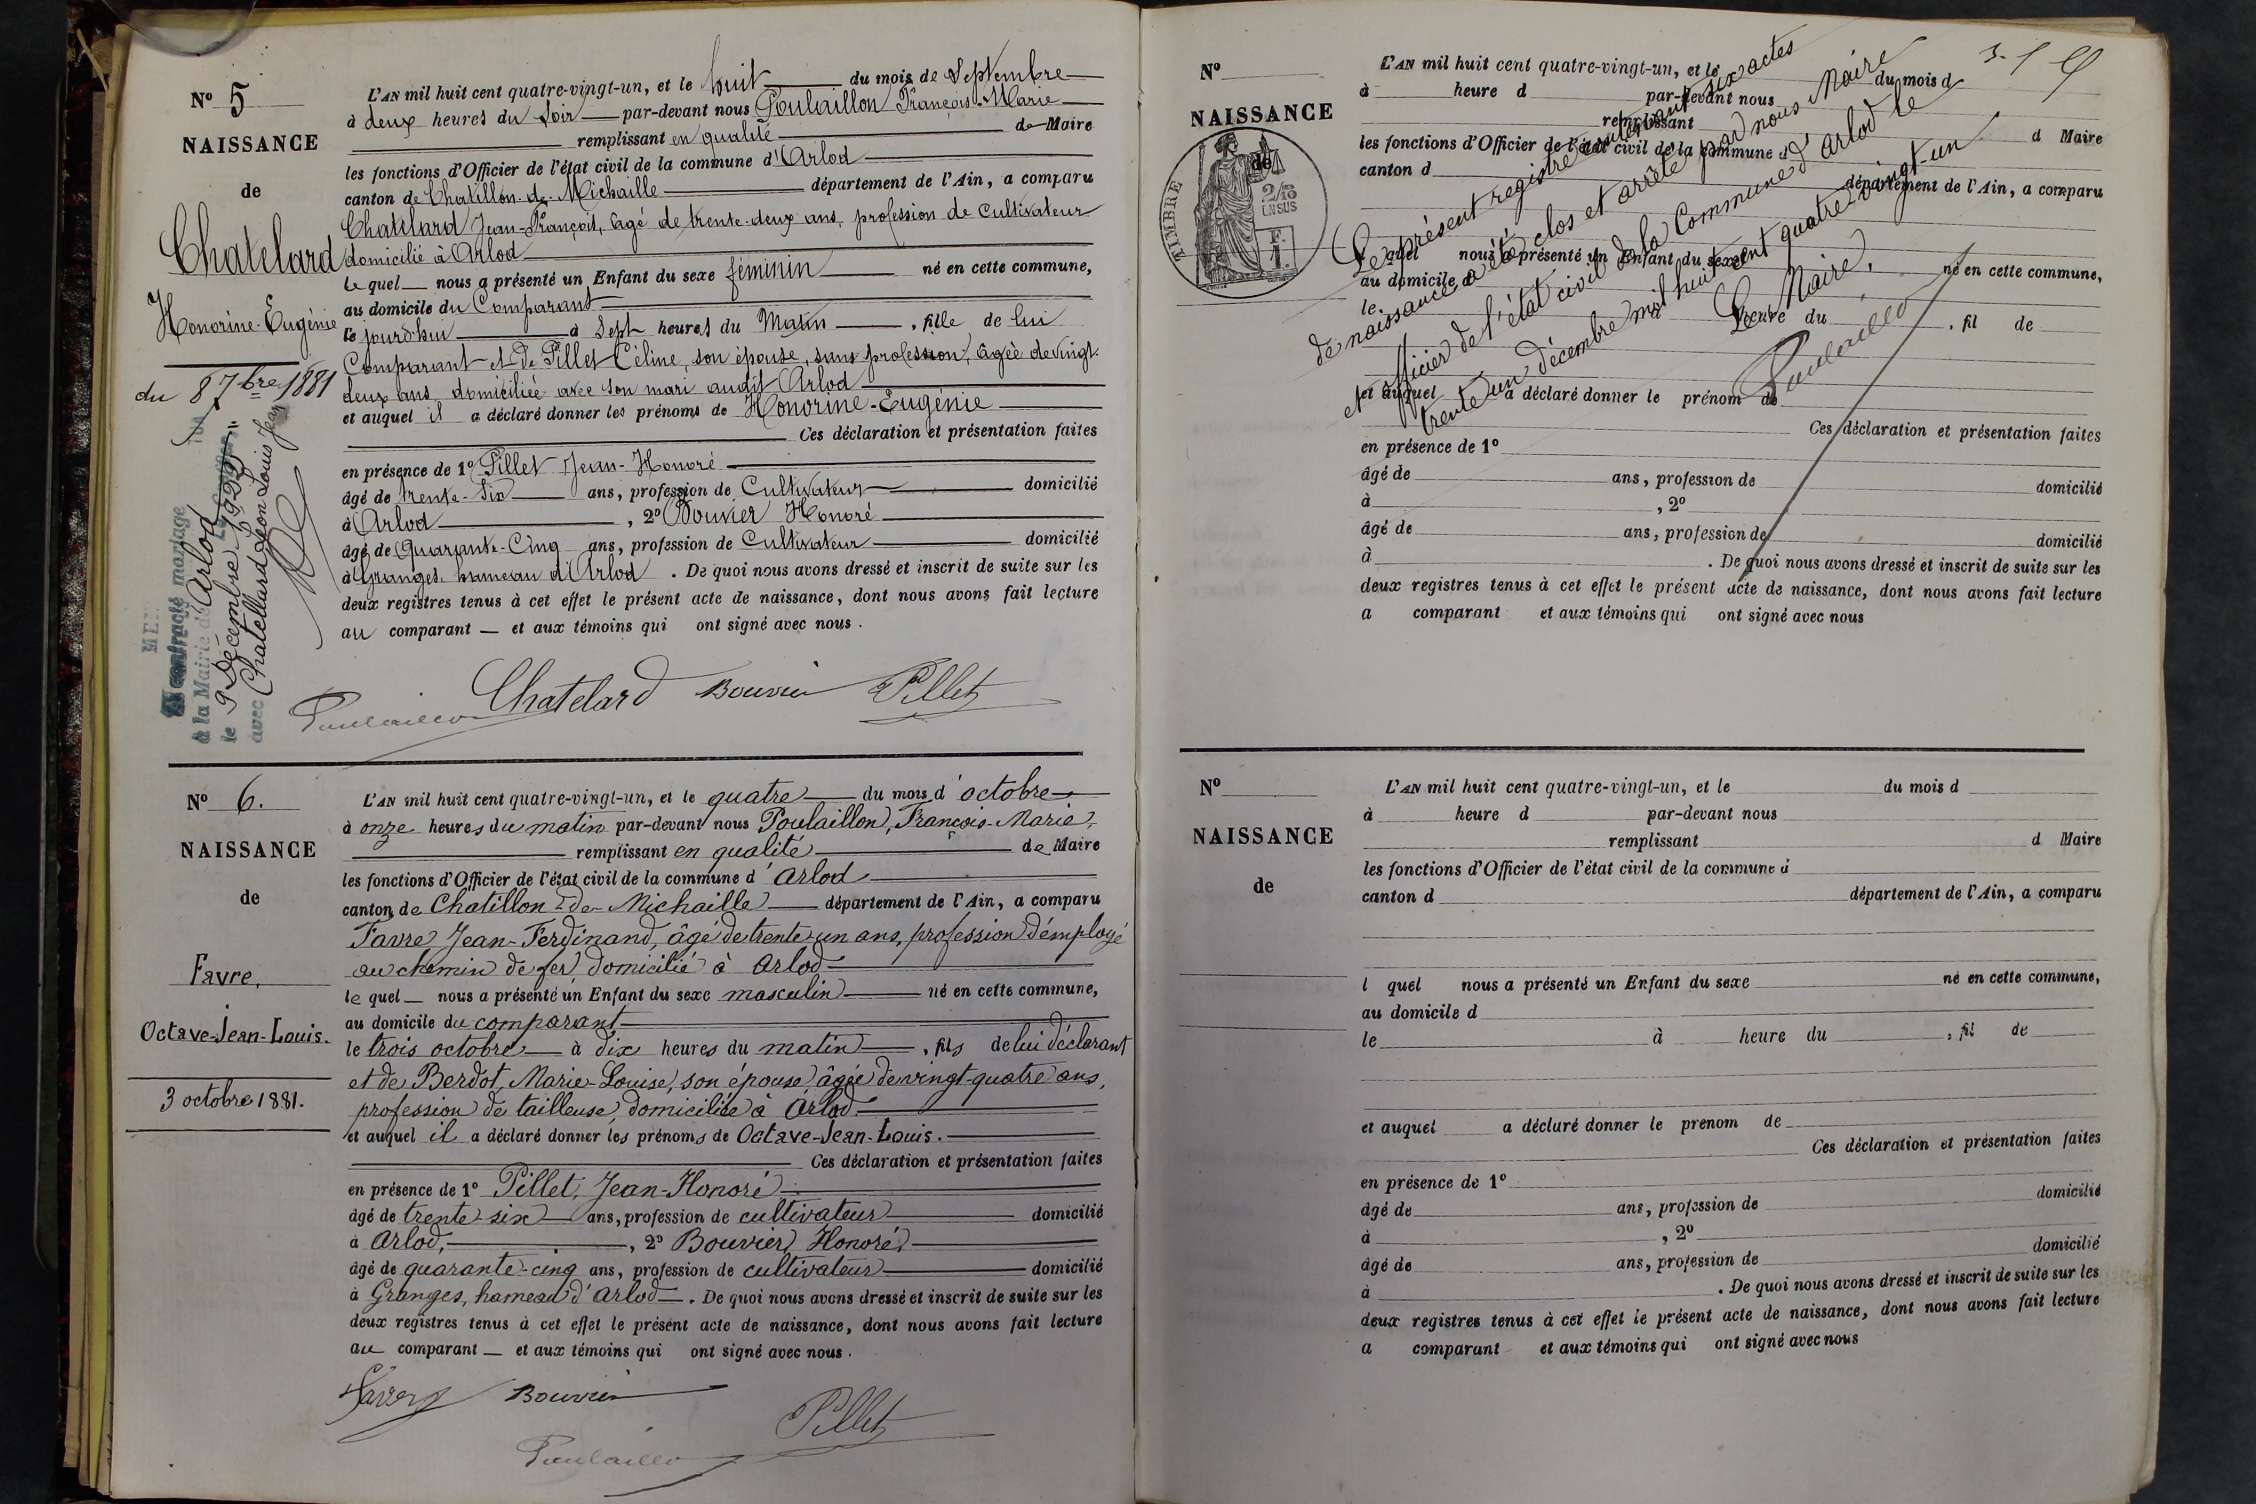 N° 5
NAISSANCE
de
Chatelard
Honorine-Eugénie
du 8 7bre 1881
A contracté mariage
à la Mairie d'Arlod
le 9 Décembre 1922
avec Chatellard Léon Louis Jean
L'AN mil huit cent quatre-vingt-un, et le huit du mois de Septembre
à deux heures du Soir par-devant nous Poulaillon François-Marie
remplissant en qualité de Maire
les fonctions d'Officier de l'état civil de la commune d'Arlod
canton de Chatillon-de-Michaille département de l'Ain, a comparu
Chatelard Jean-François, âgé de trente-deux ans, profession de Cultivateur
domicilié à Arlod
le quel nous a présenté un Enfant du sexe féminin né en cette commune,
au domicile du Comparant
le jourd'hui à Sept heures du Matin, fille de lui
Comparant et de Pillet Céline, son épouse, sans profession, âgée de vingt-
deux ans, domiciliée avec son mari audit Arlod
et auquel il a déclaré donner les prénoms de Honorine-Eugénie
Ces déclaration et présentation faites
en présence de 1° Pillet Jean-Honoré
âgé de trente-Six ans, profession de Cultivateur domicilié
à Arlod, 2° Bouvier Honoré
âgé de Quarante-Cinq ans, profession de Cultivateur domicilié
à Granges, hameau d'Arlod. De quoi nous avons dressé et inscrit de suite sur les
deux registres tenus à cet effet le présent acte de naissance, dont nous avons fait lecture
au comparant et aux témoins qui ont signé avec nous.
Poulaillon Chatelard Bouvier Pillet
N° 6.
NAISSANCE
de
Favre,
Octave-Jean-Louis.
3 octobre 1881.
L'AN mil huit cent quatre-vingt-un, et le quatre du mois d'octobre
à onze heures du matin par-devant nous Poulaillon, François-Marie,
remplissant en qualité de Maire
les fonctions d'Officier de l'état civil de la commune d'Arlod
canton de Chatillon-de-Michaille département de l'Ain, a comparu
Favre, Jean-Ferdinand, âgé de trente-un ans, profession d'employé
au chemin de fer, domicilié à Arlod
le quel nous a présenté un Enfant du sexe masculin né en cette commune,
au domicile du comparant
le trois octobre à dix heures du matin, fils de lui déclarant
et de Berdot, Marie-Louise, son épouse, âgée de vingt-quatre ans,
profession de tailleuse, domiciliée à Arlod
et auquel il a déclaré donner les prénoms de Octave-Jean-Louis.
Ces déclaration et présentation faites
en présence de 1° Pillet, Jean-Honoré
âgé de trente-six ans, profession de cultivateur domicilié
à Arlod, 2° Bouvier, Honoré,
âgé de quarante-cinq ans, profession de cultivateur domicilié
à Granges, hameau d'Arlod. De quoi nous avons dressé et inscrit de suite sur les
deux registres tenus à cet effet le présent acte de naissance, dont nous avons fait lecture
au comparant et aux témoins qui ont signé avec nous.
Favre Bouvier Pillet
Poulaillon
N°
NAISSANCE
de
TIMBRE
2/10
EN SUS
F.
1.
L'AN mil huit cent quatre-vingt-un, et le du mois d
à heure d par-devant nous
remplissant d Maire
les fonctions d'Officier de l'état civil de la commune d
canton d département de l'Ain, a comparu
l quel nous a présenté un Enfant du sexe né en cette commune,
au domicile d
le à heure du , fil de
et auquel a déclaré donner le prénom de
Ces déclaration et présentation faites
en présence de 1°
âgé de ans, profession de domicilié
à , 2°
âgé de ans, profession de domicilié
à . De quoi nous avons dressé et inscrit de suite sur les
deux registres tenus à cet effet le présent acte de naissance, dont nous avons fait lecture
a comparant et aux témoins qui ont signé avec nous
Le présent registre contenant six actes
de naissance a été clos et arrêté par nous Maire
et officier de l'état civil de la Commune d'Arlod le
trente un décembre mil huit cent quatre-vingt-un
Le Maire,
Poulaillon
N°
NAISSANCE
de
L'AN mil huit cent quatre-vingt-un, et le du mois d
à heure d par-devant nous
remplissant d Maire
les fonctions d'Officier de l'état civil de la commune d
canton d département de l'Ain, a comparu
l quel nous a présenté un Enfant du sexe né en cette commune,
au domicile d
le à heure du , fil de
et auquel a déclaré donner le prenom de
Ces déclaration et présentation faites
en présence de 1°
âgé de ans, profession de domicilié
à , 2°
âgé de ans, profession de domicilié
à . De quoi nous avons dressé et inscrit de suite sur les
deux registres tenus à cet effet le présent acte de naissance, dont nous avons fait lecture
a comparant et aux témoins qui ont signé avec nous